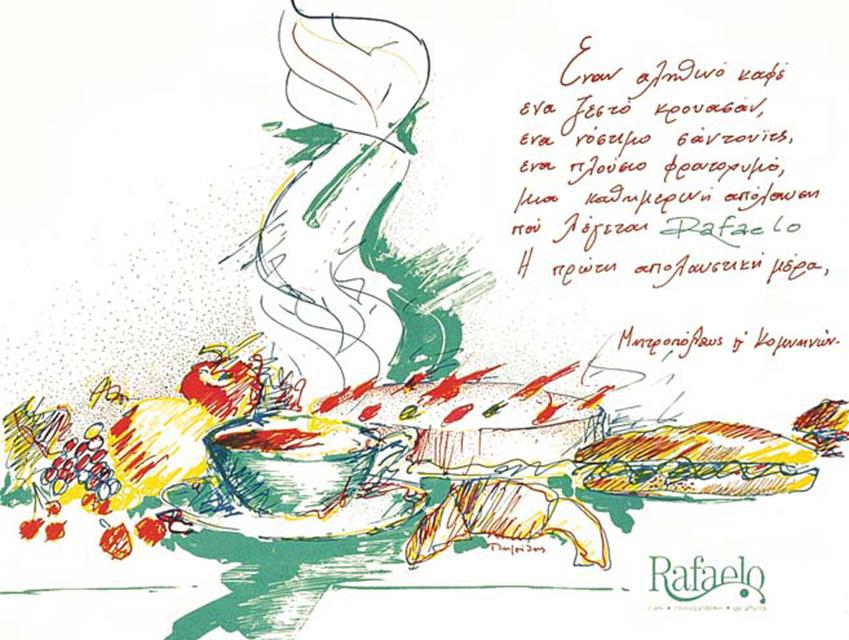 Έναν αληθινό καφέ
ένα ζεστό κρουασάν,
ένα νόστιμο σάντουϊτς,
ένα πλούσιο φρουτοχυμό,
μια καθημερινή απόλαυση
πού λέγεται Rafaelo
Η πρώτη απολαυστική μέρα,
Μητροπόλεως & Κομνηνών.
Rafaelo